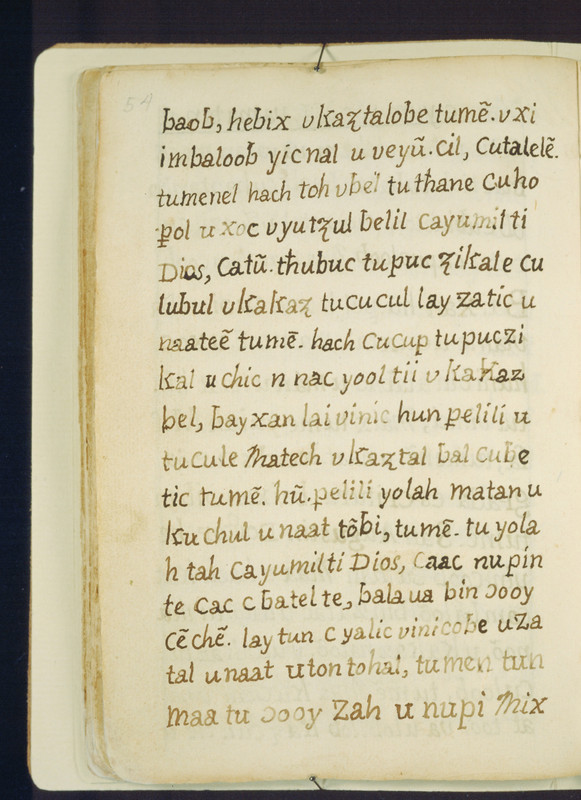 54
baob, hebix v kaꜩtalobe tumẽ. v xi
imbaloob yicnal u veyũ. cil, Cutalelẽ.
tumenel hach toh v bel tu thane Cuho
pol u xoc vyutꜩul belil Cayumil ti
Dios, Catũ. thubuc tu puc ꜩikale Cu
lubul v kakaꜩ tucucul lay zatic u
naateẽ tumẽ. hach Cucup tu puczi
kal u chic n nac yool tii v kakaz
bel, bay xan lai vinic hun pelili u
tucule Matech v kaꜩtal bal Cube
tic tumẽ. hũ. pelili yolah matan u
ku chul u naat tõbi, tumẽ. tu yola
h tah Cayumil ti Dios, Caac nu pin
te Cac c batel te, bala ua bin ɔooy
cẽ chẽ. lay tun C yalic vinicobe uza
tal u naat u ton tohal, tumen tun
maa tu ɔooy Zah u nupi Mix